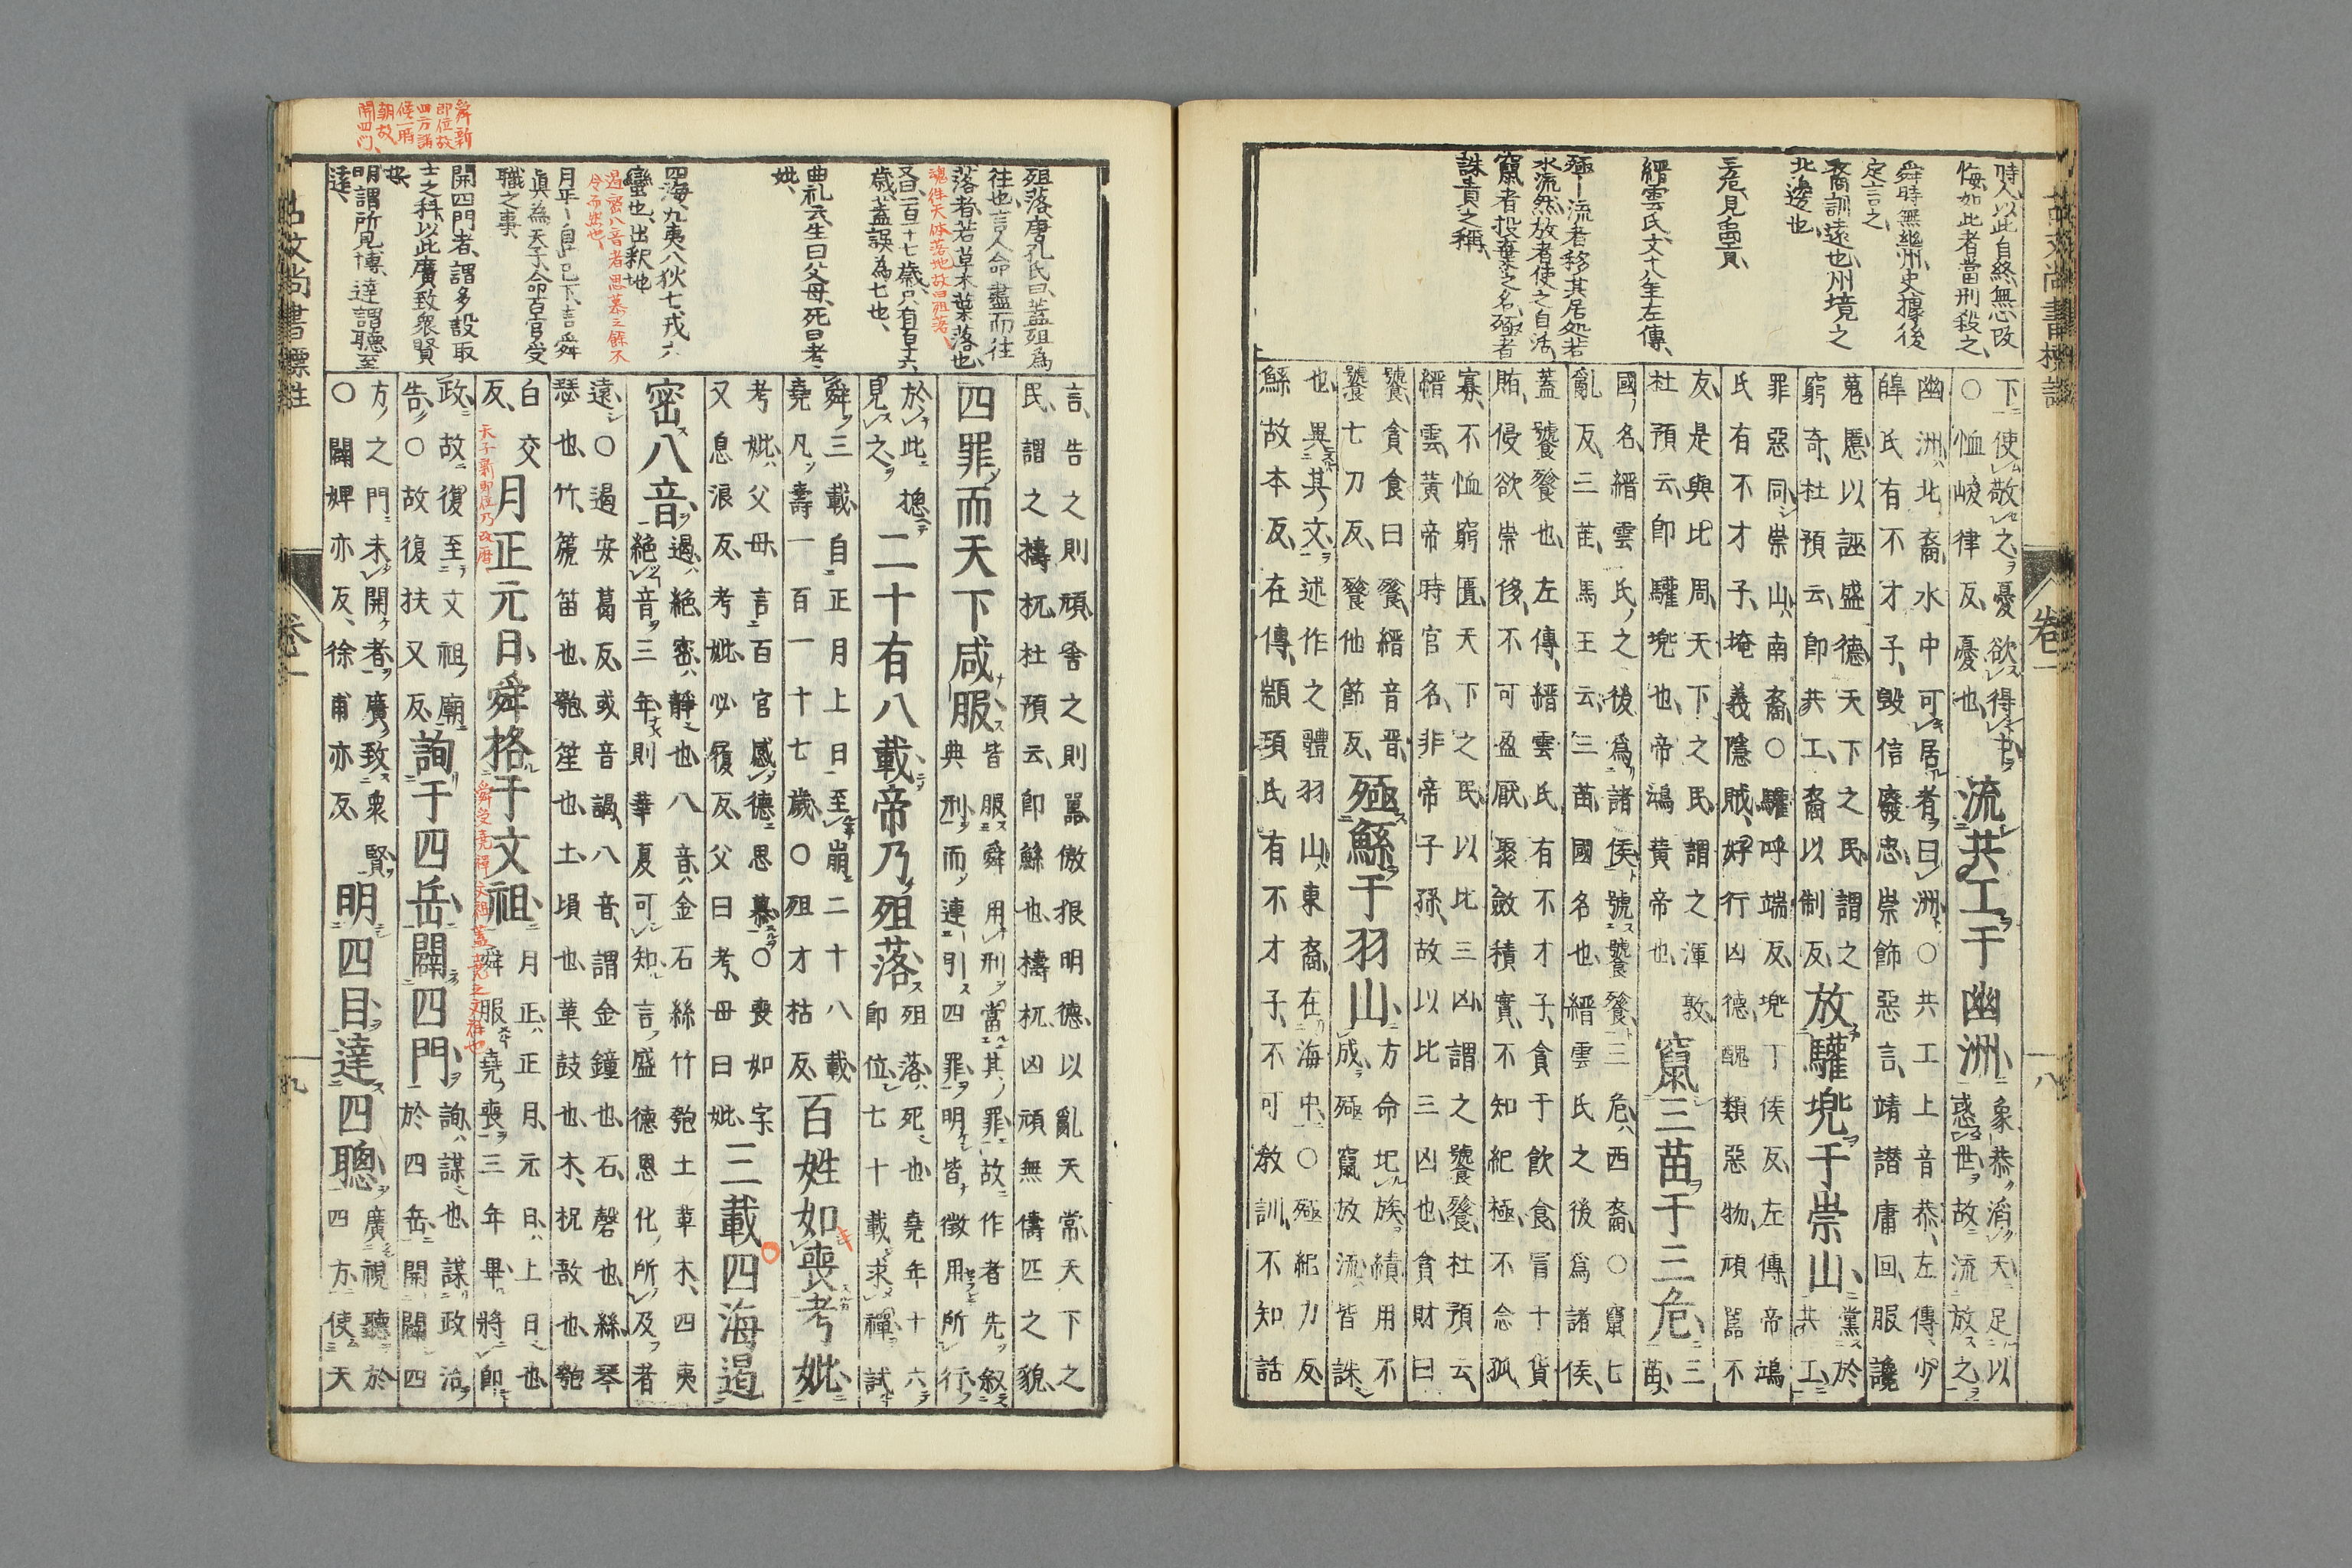 古文尚書標註
卷一
八
時人以此自終無恧改
悔如此者當刑殺之
舜時無幽洲史據後
定言之
裔訓遠也州境之
北邊也
三危見禹貢
縉雲氏文十八年左傳
殛―流者移其居処若
水流然放者使之自活
竄者投棄之名殛者
誅責之稱
下使敬之憂欲得中
○恤峻律反憂也
流共工于幽洲
象恭滔天足以
惑世故流放之
幽洲北裔水中可居者曰洲○共工上音恭左傳少
皥氏有不才子毀信廢忠崇飾惡言靖譛庸回服讒
蒐慝以誣盛德天下之民謂之
窮奇杜預云即共工裔以制反
放驩兜于崇山
黨於
共工
罪惡同崇山南裔○驩呼端反兜丁侯反左傳帝鴻
氏有不才子掩義隱賊好行凶德醜類惡物頑嚚不
友是與比周天下之民謂之渾敦
杜預云即驩兜也帝鴻黄帝也
竄三苗于三危
三
苗
國名縉雲氏之後爲諸侯號饕餮三危西裔○竄七
亂反三苗馬王云三苗國名也縉雲氏之後爲諸侯
蓋饕餮也左傳縉雲氏有不才子貪于飲食冒于貨
賄侵欲崇侈不可盈厭聚斂積實不知紀極不念孤
寡不恤窮匱天下之民以比三凶謂之饕餮杜預云
縉雲黄帝時官名非帝子孫故以比三凶也貪財曰
饕貪食曰餮縉音晉
饕七刀反餮他節反
殛鯀于羽山
方命圯族績用不
成殛竄放流皆誅
也異其文述作之體羽山東裔在海中○殛紀力反
鯀故本反在傳顓頊氏有不才子不可教訓不知話
殂落唐孔氏曰蓋殂為
往也言人命盡而往
落者若草木葉落也
魂仵天体落地故曰殂落
又百一百十七歳只有百十六
歳蓋誤為七也
曲礼云生曰父母死曰考
妣
四海九夷八狄七戎六
蠻也出釈地
遏密八音者思慕之餘不
令而出也
月正―自此已下言舜
真為天子命百官受
職之事
開四門者謂多設取
士之科以此廣致衆賢
也
明謂所見博達謂聽至
遠
舜新
即位故
四方諸
候一時
朝故
開四門
言告之則頑舍之則嚚傲狠明德以亂天常天下之
民謂之檮杌杜預云即鯀也檮杌凶頑無儔匹之貌
四罪而天下咸服
皆服舜用刑當其罪故作者先叙
典刑而連引四罪明皆徴用所行
於此
見之
揔
二十有八載帝乃殂落
殂落死也堯年十六
即位七十載求禪試
舜三載自正月上日至崩二十八載
堯凡壽一百一十七歲○殂才枯反
百姓如喪考妣
考妣父母言百官感德思慕○喪如字
又息浪反考妣必履反父曰考母曰妣
三載四海遏
密八音
遏絕密靜也八音金石絲竹匏土革木四夷
絕音三年則華夏可知言盛德恩化所及者
遠○遏安葛反或音謁八音謂金鐘也石磬也絲琴
瑟也竹箎笛也匏笙也土塤也革鼓也木柷敔也匏
白交
反
月正元日舜格于文祖
月正正月元日上日也
舜服堯喪三年畢將即
天子新即位乃改曆
舜受堯禪文祖蓋堯之文祖也
政故復至文祖廟
告○故復扶又反
詢于四岳闢四門
詢謀也謀政治
於四岳開闢四
方之門未開者廣致衆賢
○闢婢亦反徐甫亦反
明四目達四聰
廣視聽於
四方使天
古文尚書標註
卷一
九